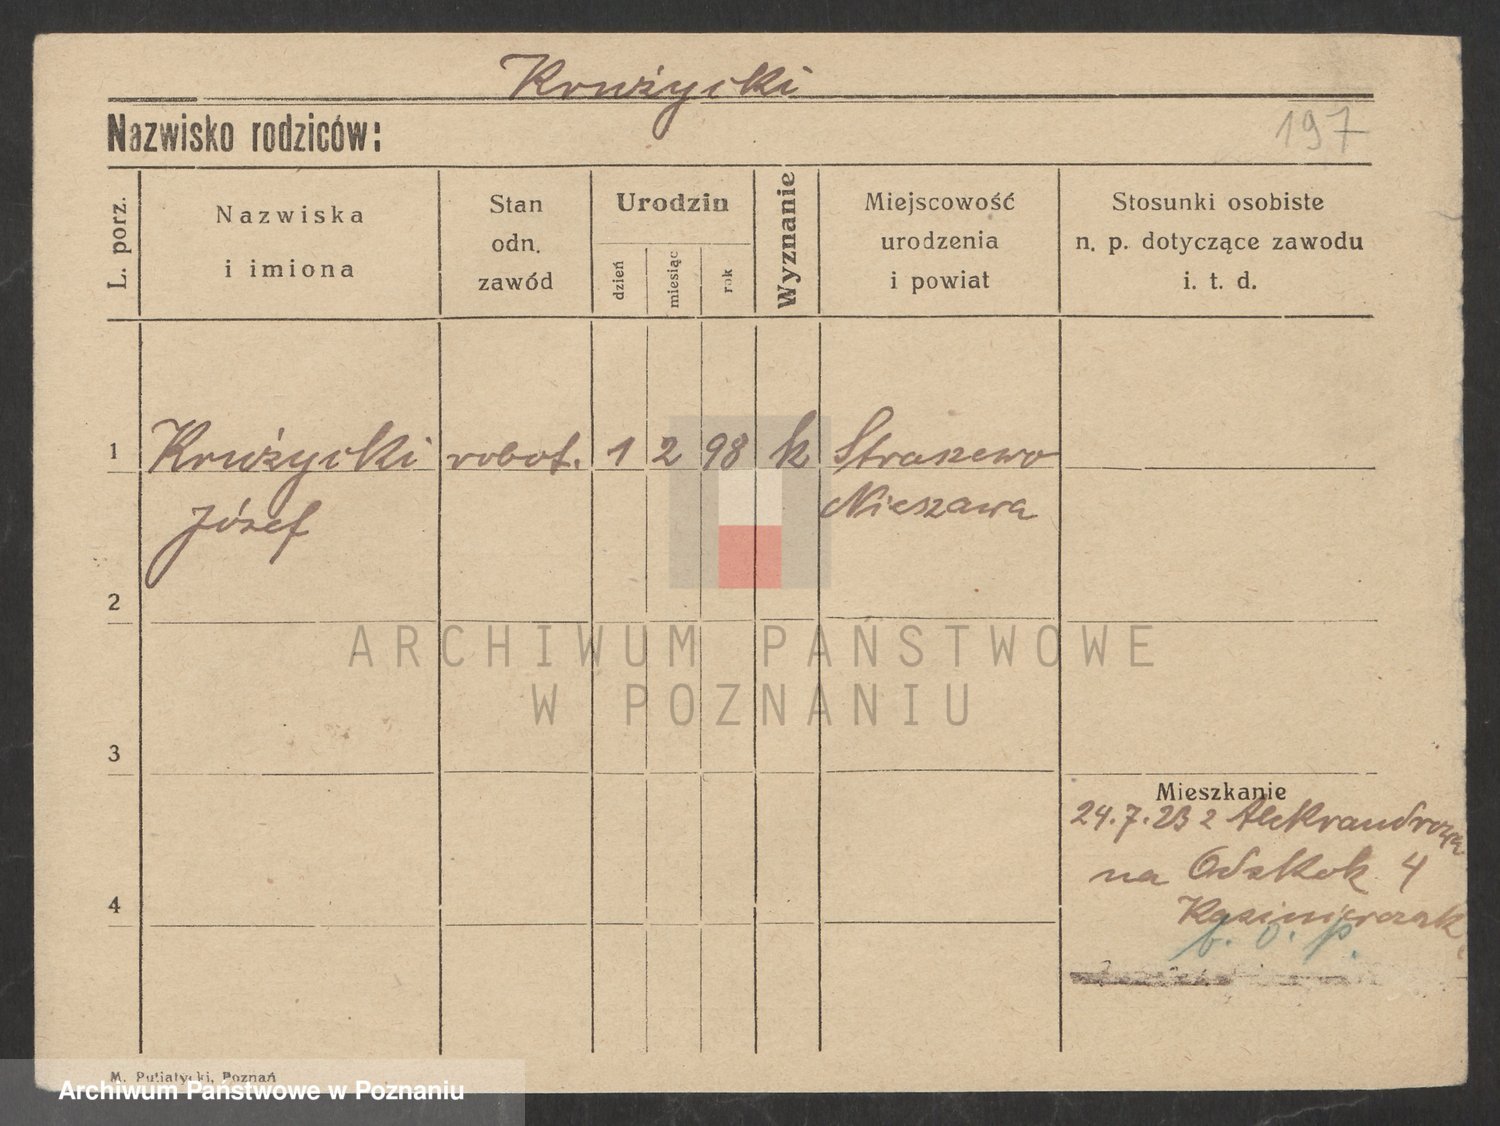 Krużycki
Nazwisko rodziców:
197
L. porz.
Nazwiska
i imiona
Stan
odn.
zawód
Urodzin
dzień
miesiąc
rok
Wyznanie
Miejscowość
urodzenia
i powiat
Stosunki osobiste
n. p. dotyczące zawodu
i. t. d.
1
Krużycki robot. 1 2 98 k Straszewo
Józef Nieszawa
2
ARCHIWUM PAŃSTWOWE
W POZNANIU
3
Mieszkanie
24.7.23 z Aleksandrowa
na Odskok 4
Kazimierczak
b. o. p.
4
M. Putiatycki, Poznań
Archiwum Państwowe w Poznaniu